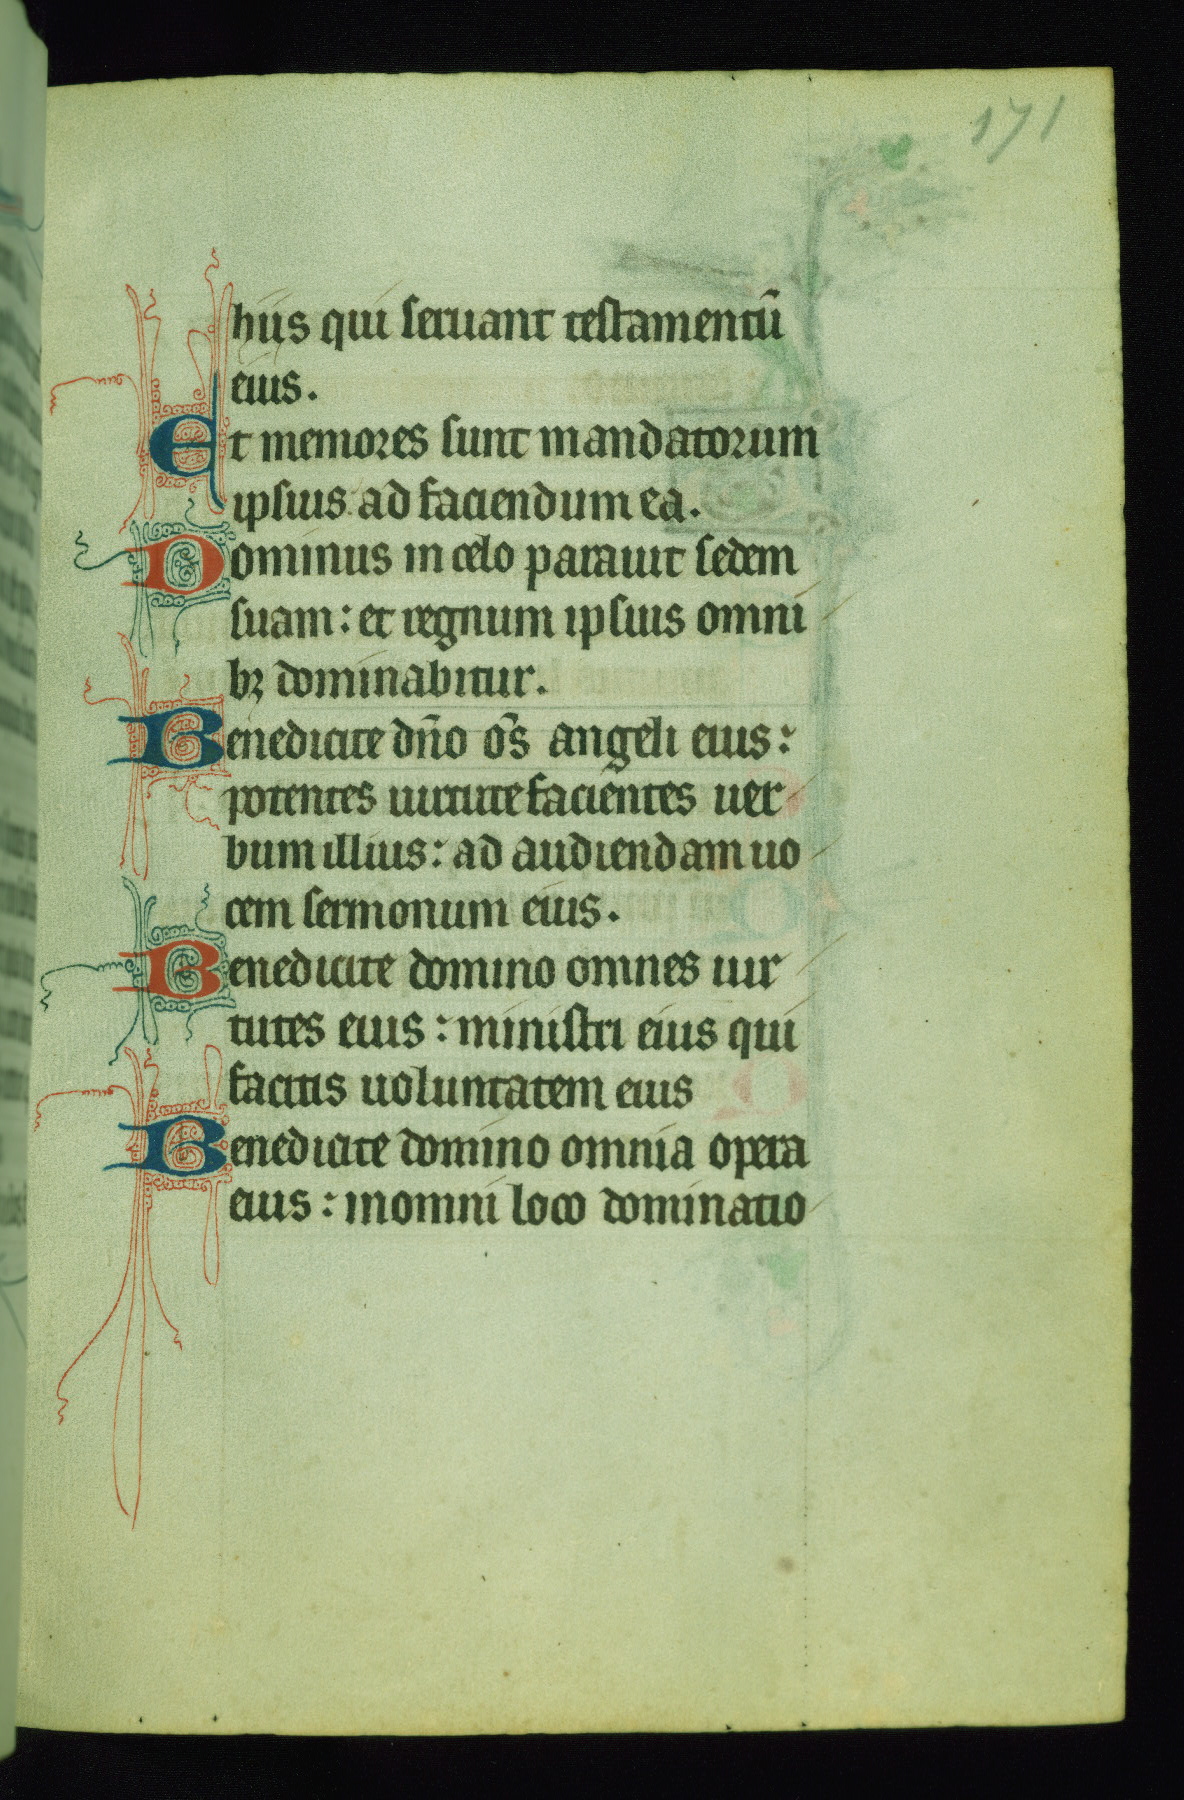 171
hiis qui seruant testamentū
eius.
Et memores sunt mandatorum
ipsius ad faciendum ea.
Dominus in celo parauit sedem
suam : et regnum ipsius omni
bꝫ dominabitur.
Benedicite dn̄o om̄s angeli eius :
potentes uirtute facientes uer
bum illius : ad audiendam uo
cem sermonum eius.
Benedicite domino omnes uir
tutes eius : ministri eius qui
facitis uoluntatem eius
Benedicite domino omnia opera
eius : in omni loco dominatio